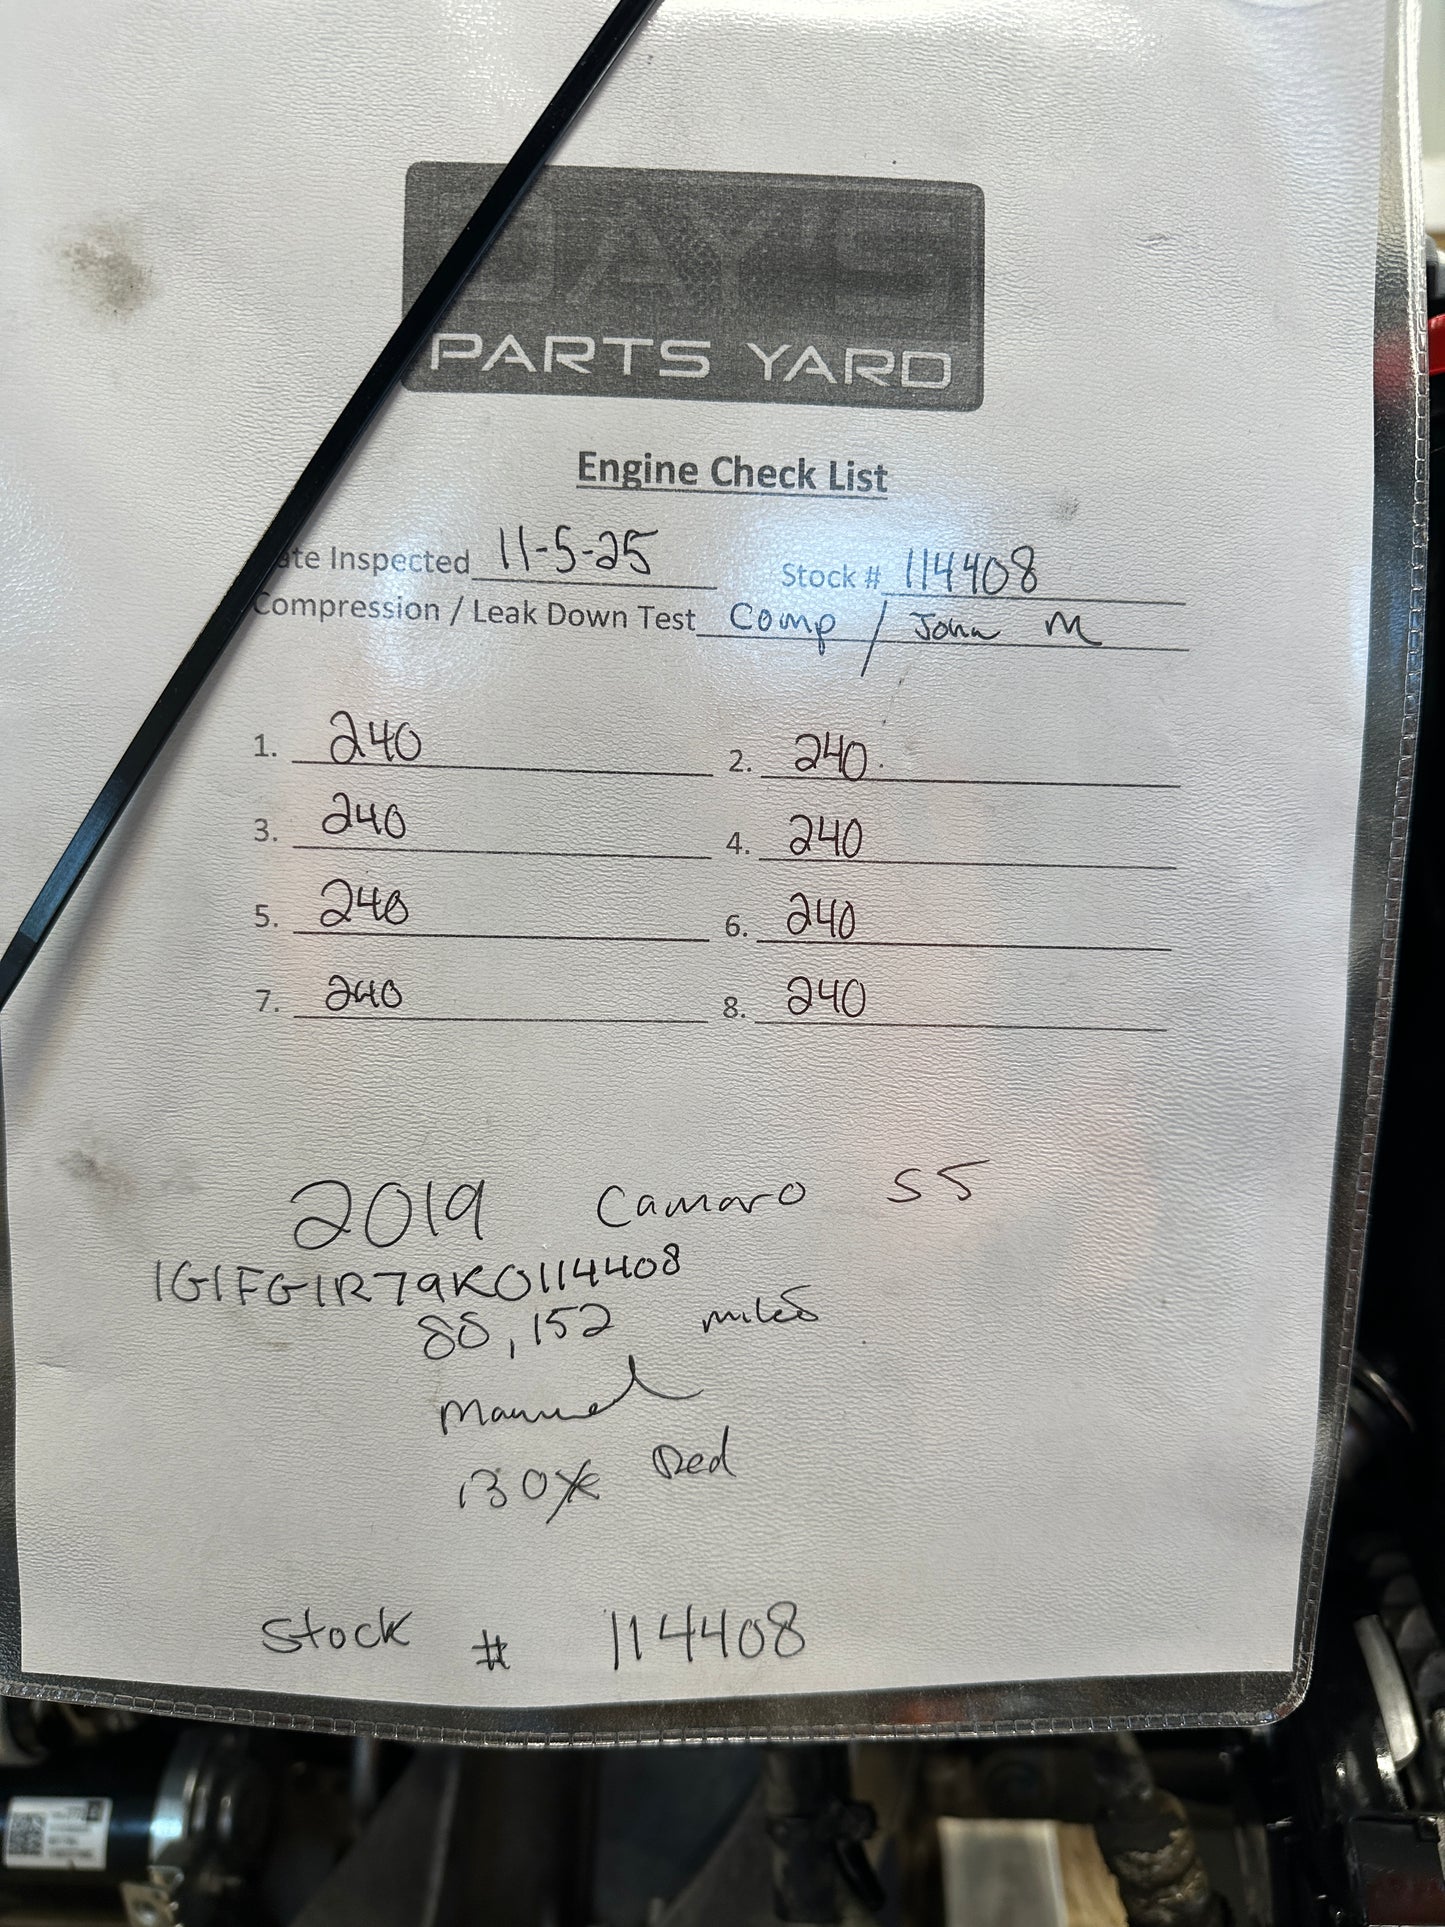 DAY'S
PARTS YARD
Engine Check List
ate Inspected 11-5-25 Stock # 114408
Compression / Leak Down Test Comp / John M
1. 240 2. 240
3. 240 4. 240
5. 240 6. 240
7. 240 8. 240
2019 Camaro SS
1G1FG1R79K0114408
88,152 miles
Manual
130K Red
Stock # 114408